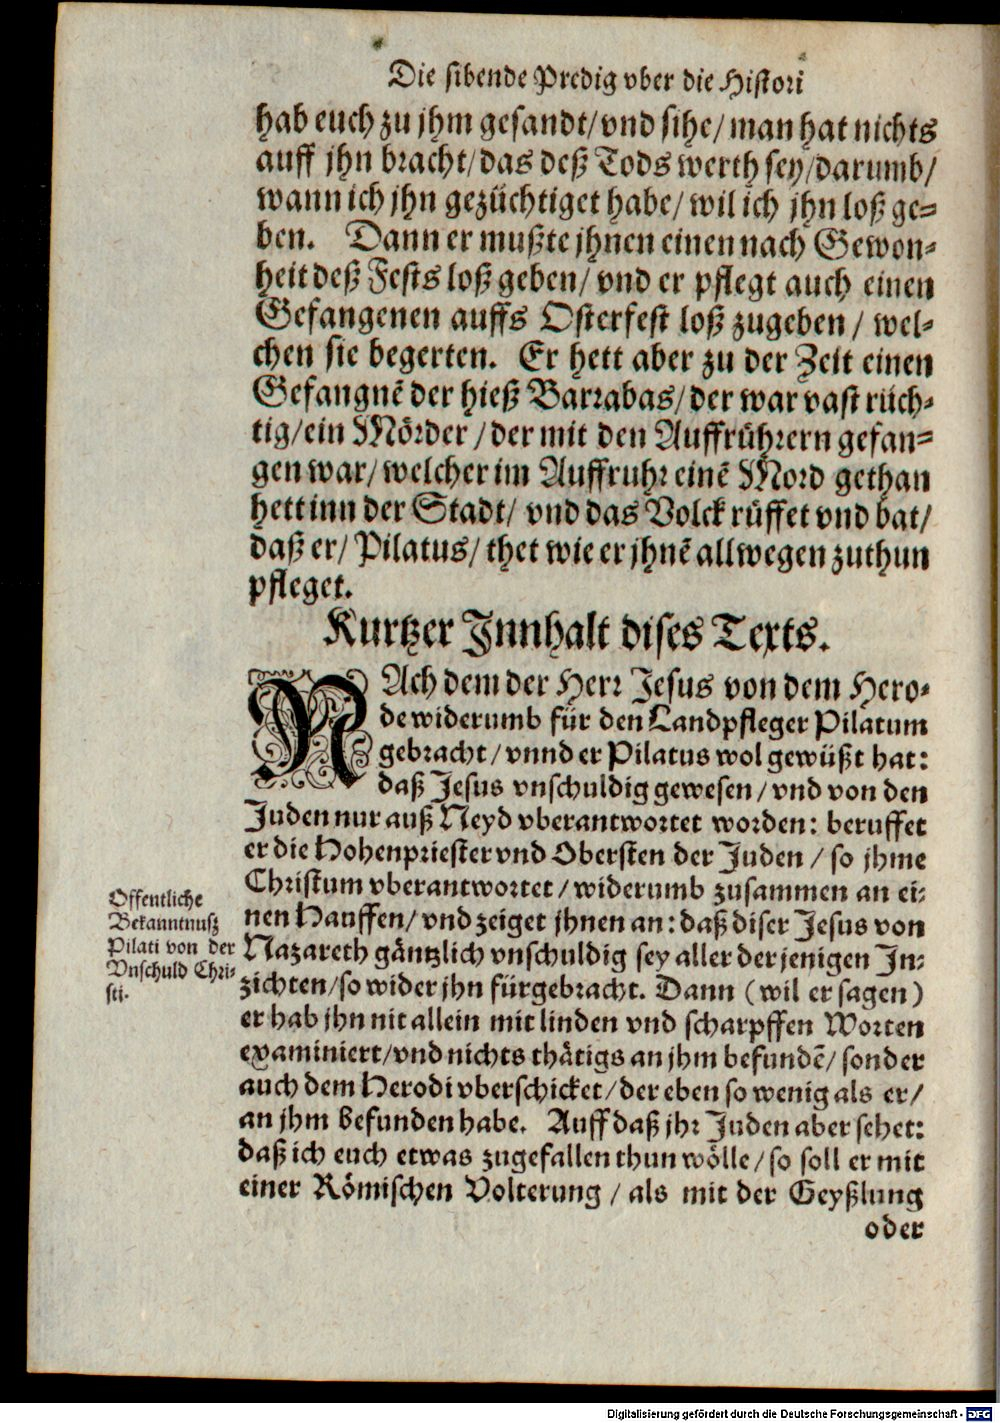 Die sibende Predig vber die Histori
hab euch zu jhm gesandt/ vnd sihe/ man hat nichts
auff jhn bracht/ das deß Tods werth sey/ darumb/
wann ich jhn gezüchtiget habe/ wil ich jhn loß ge-
ben. Dann er mußte jhnen einen nach Gewon-
heit deß Fests loß geben/ vnd er pflegt auch einen
Gefangenen auffs Osterfest loß zugeben/ wel-
chen sie begerten. Er hett aber zu der Zeit einen
Gefangnē der hieß Barrabas/ der war vast rüch-
tig/ ein Mörder/ der mit den Auffrührern gefan-
gen war/ welcher im Auffruhr einē Mord gethan
hett inn der Stadt/ vnd das Volck rüffet vnd bat/
daß er/ Pilatus/ thet wie er jhnē allwegen zuthun
pfleget.
Kurtzer Innhalt dises Texts.
NAch dem der Herr Jesus von dem Hero-
de widerumb für den Landpfleger Pilatum
gebracht/ vnnd er Pilatus wol gewüßt hat:
daß Jesus vnschuldig gewesen/ vnd von den
Juden nur auß Neyd vberantwortet worden: beruffet
er die Hohenpriester vnd Obersten der Juden/ so jhme
Christum vberantwortet/ widerumb zusammen an ei-
nen Hauffen/ vnd zeiget jhnen an: daß diser Jesus von
Nazareth gäntzlich vnschuldig sey aller der jenigen In-
zichten/ so wider jhn fürgebracht. Dann (wil er sagen)
er hab jhn nit allein mit linden vnd scharpffen Worten
examiniert/ vnd nichts thätigs an jhm befundē/ sonder
auch dem Herodi vberschicket/ der eben so wenig als er/
an jhm befunden habe. Auff daß jhr Juden aber sehet:
daß ich euch etwas zugefallen thun wölle/ so soll er mit
einer Römischen Volterung/ als mit der Geyßlung
oder
Offentliche
Bekanntnusz
Pilati von der
Vnschuld Chri-
sti.
Digitalisierung gefördert durch die Deutsche Forschungsgemeinschaft - DFG